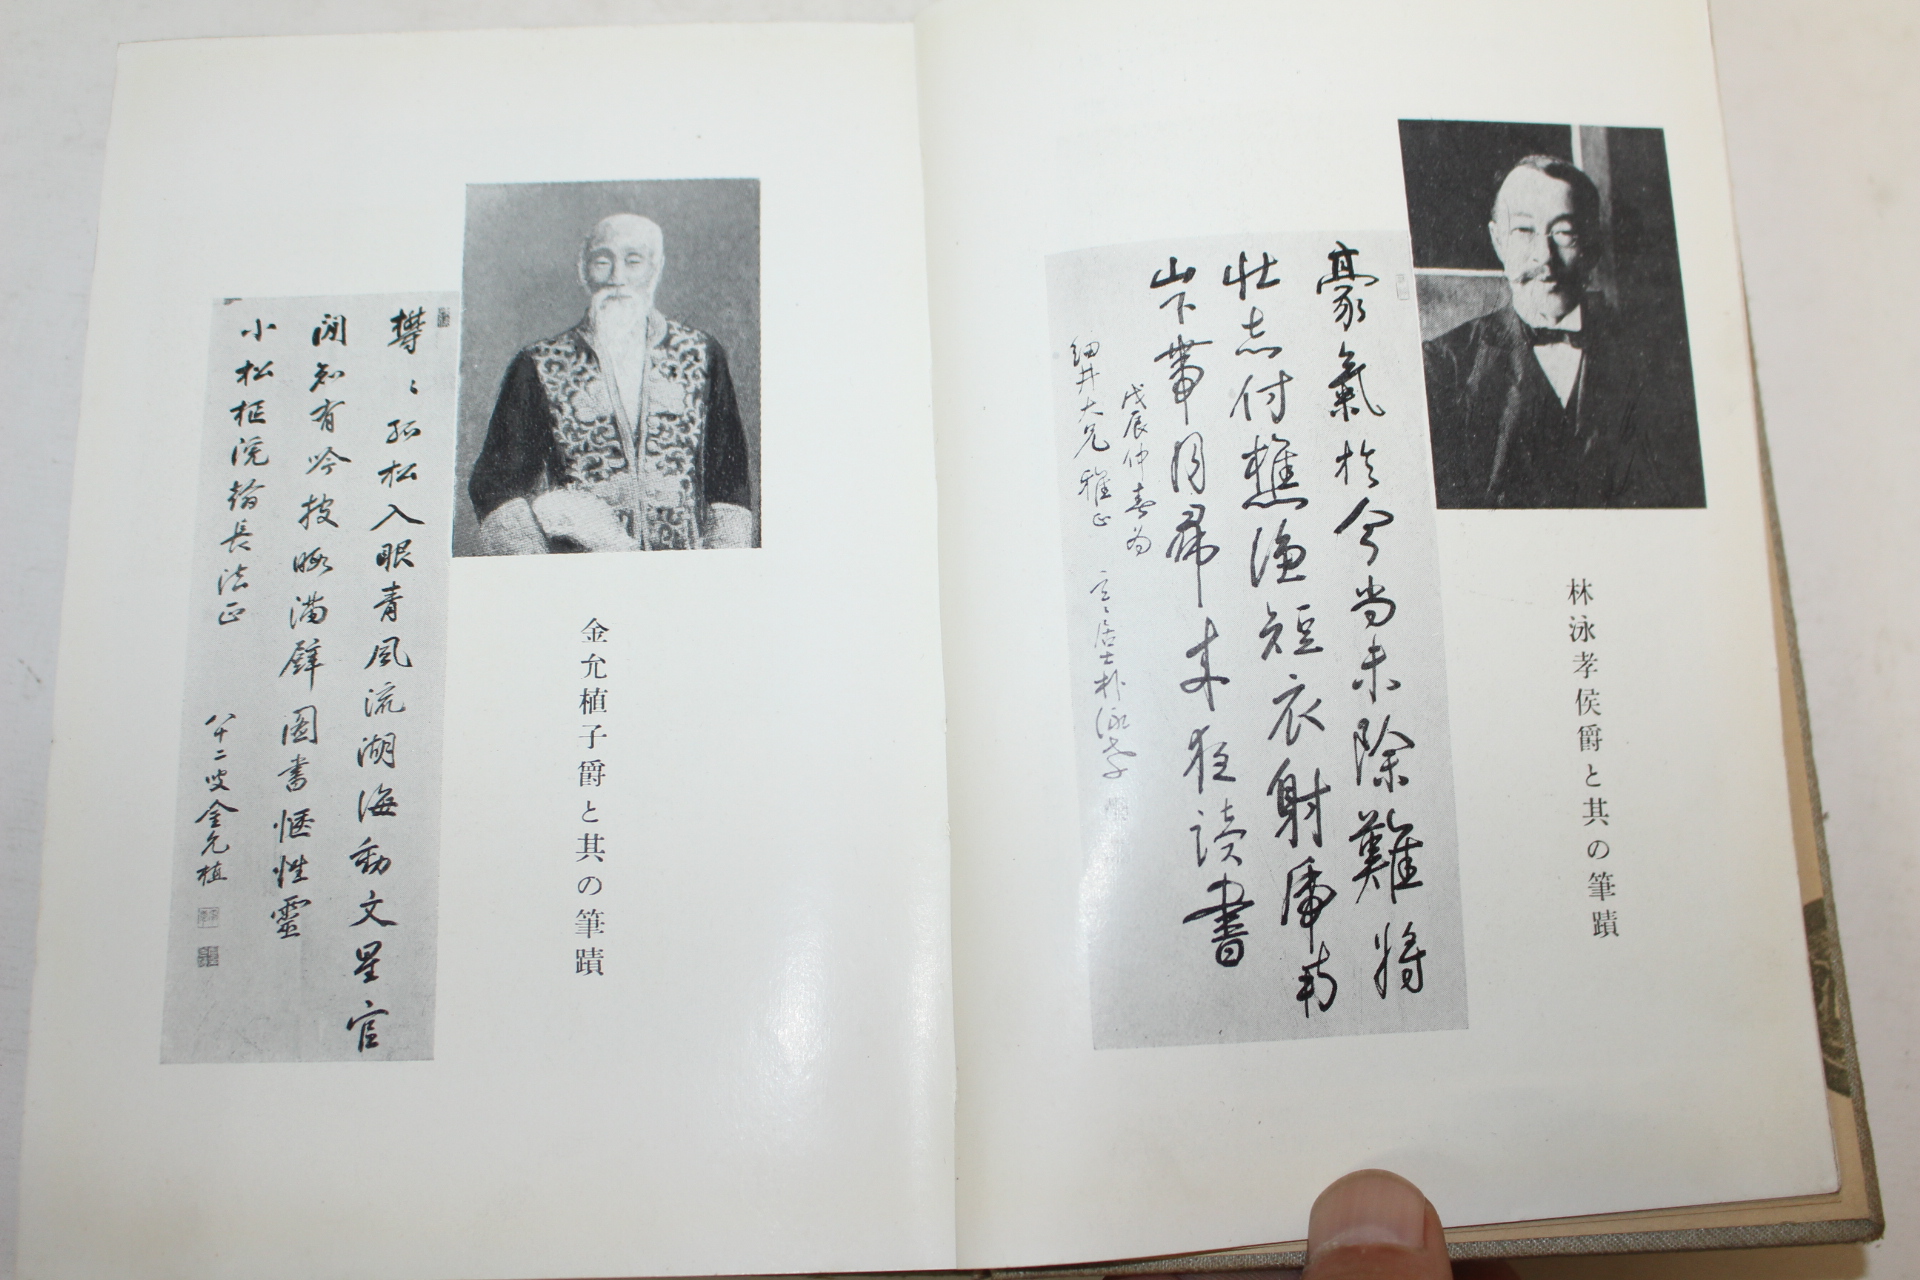 林泳孝侯爵と其の筆蹟
豪氣於今尚未除難將
壯志付樵漁短衣射虎南
山下帶月歸來狂讀書
戊辰仲春為
細井大兄雅正 玄〻居士朴泳孝
金允植子爵と其の筆蹟
欝〻孤松入眼青風流湖海動文星官
閒知有吟披暇滿壁圖書愜性靈
小松樞院翰長法正
八十二叟金允植